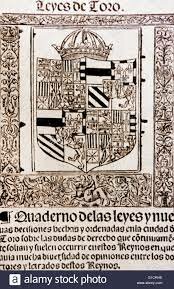 Leyes de Toro.
Quaderno delas leyes y nue
uas decisiones hechas y ordenadas enla ciudad de
Toro sobre las dudas de derecho que continuamente
solian y suelen ocurrir enestos Reynos en que
auia mucha diuersidad de opiniones entre los doc
tores y letrados destos Reynos.
alamy stock photo